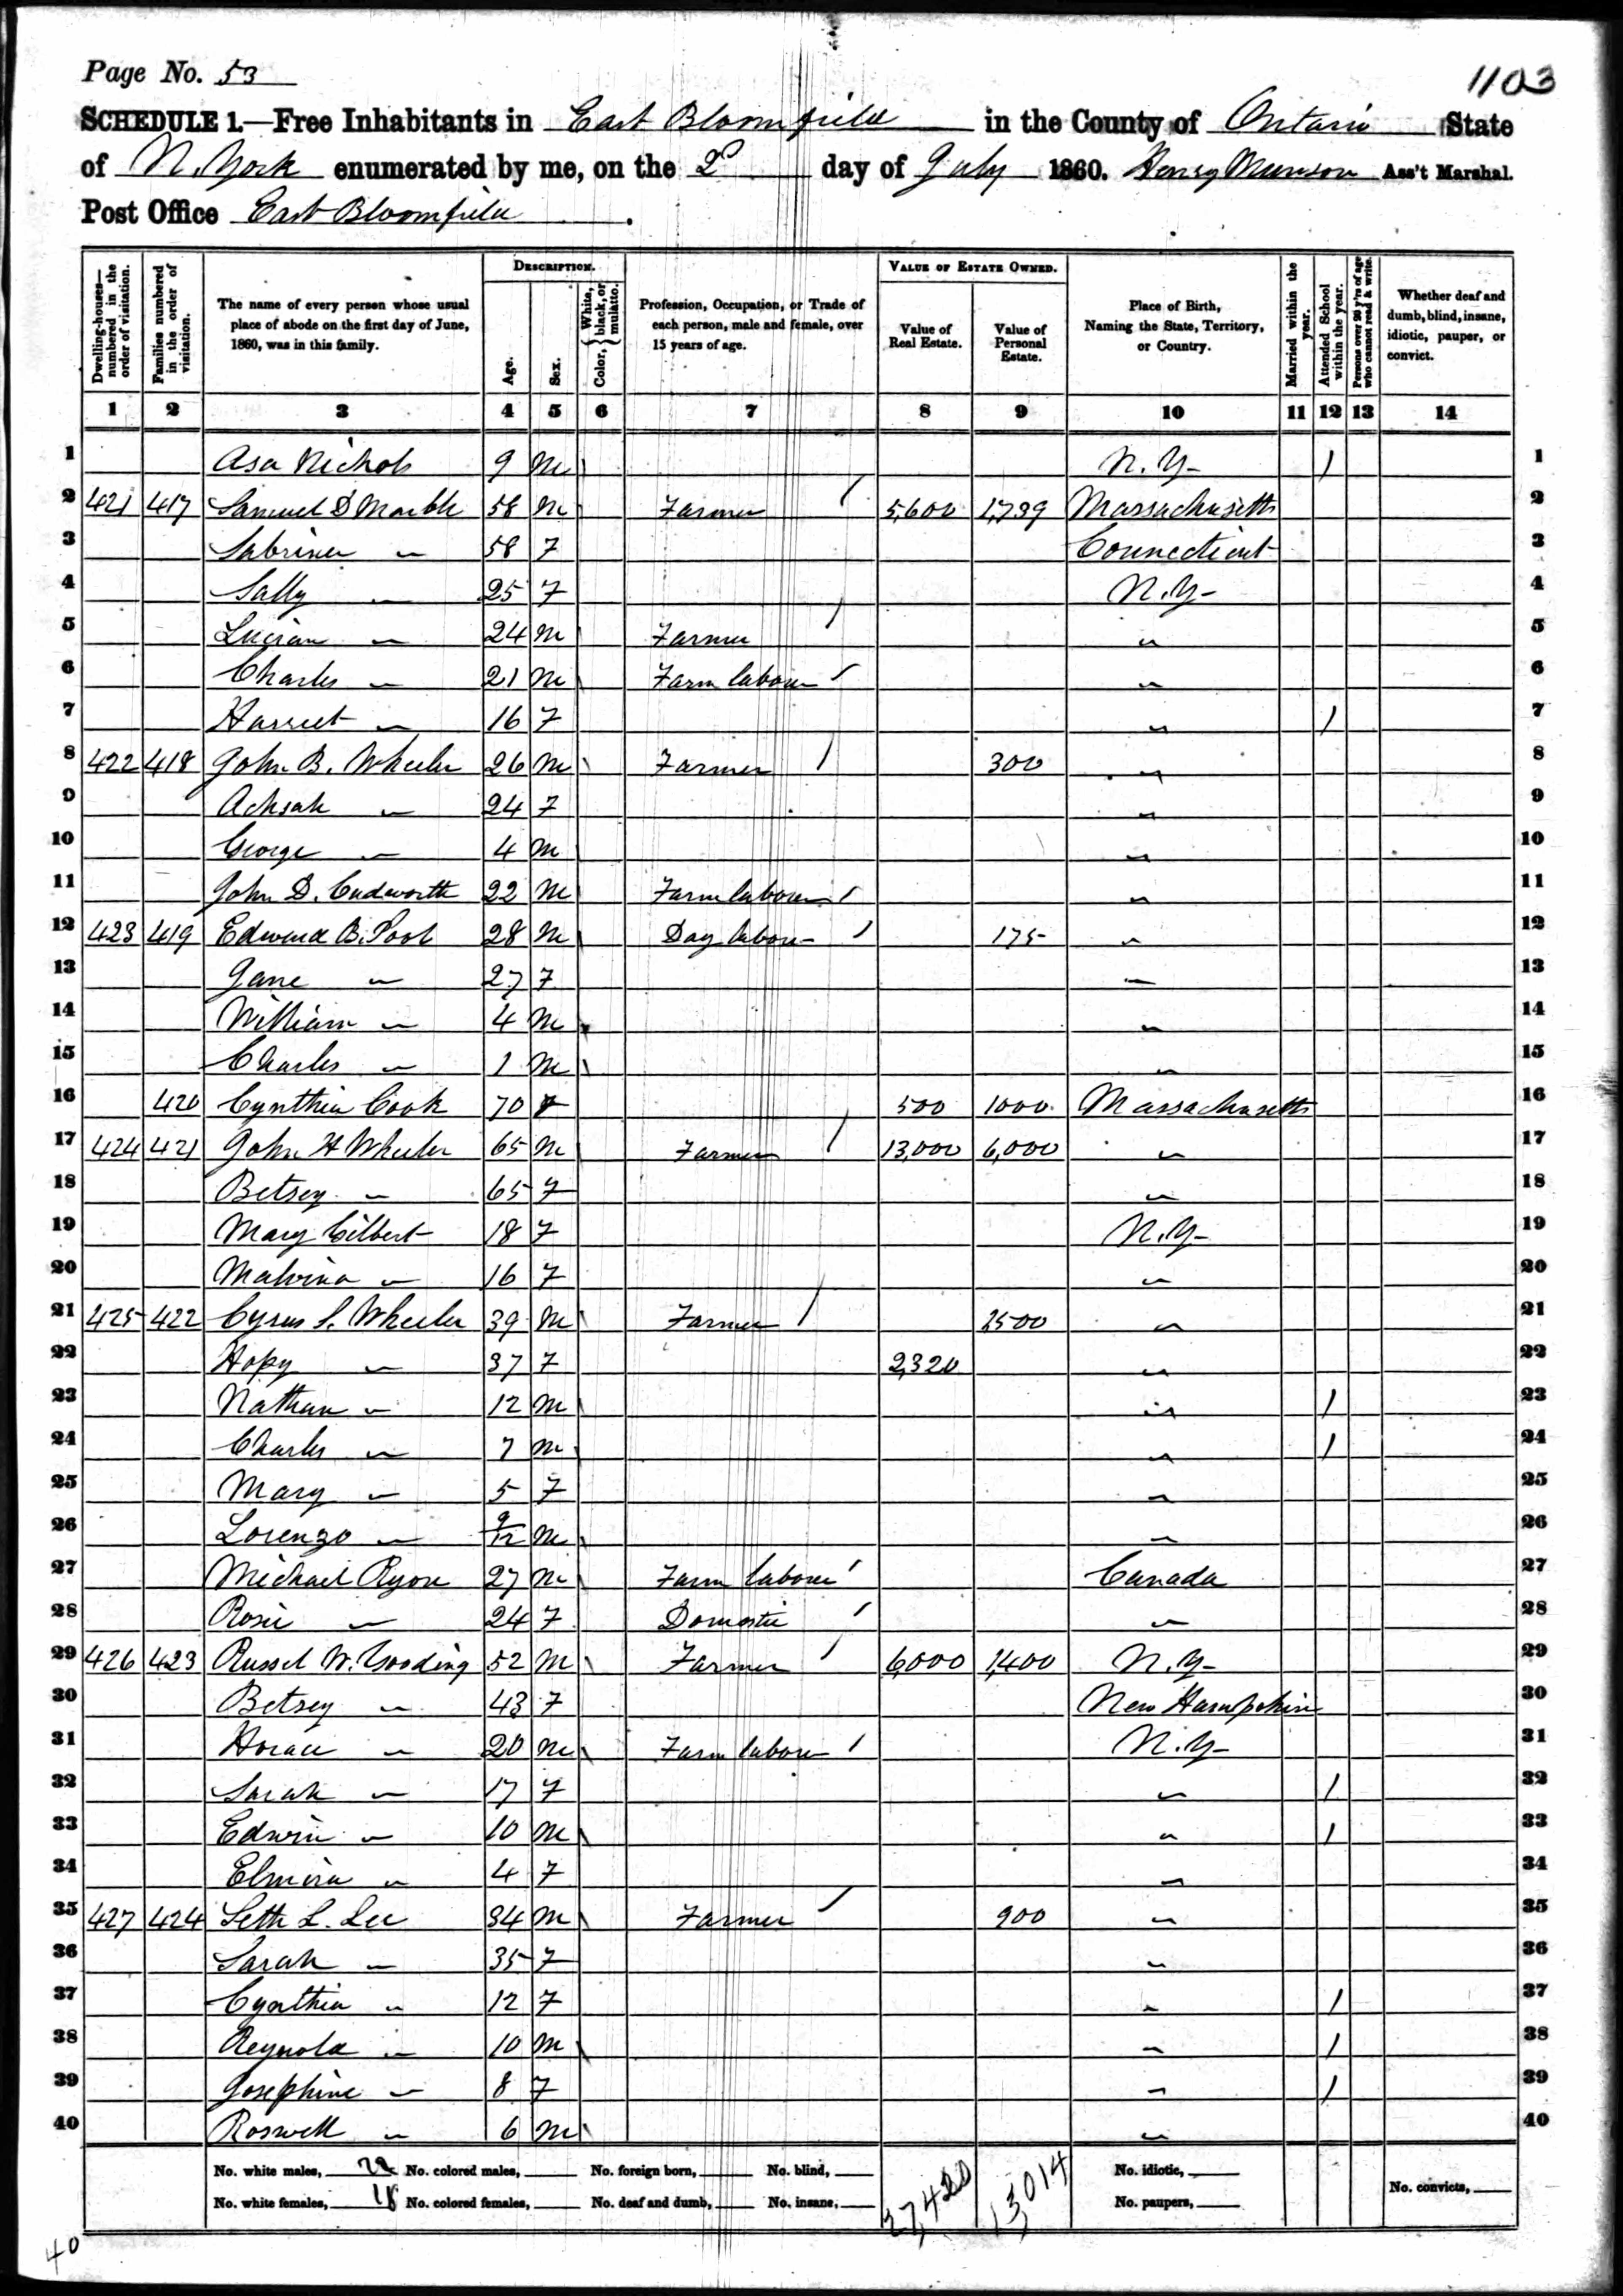 Page No. 53
1103
SCHEDULE 1.—Free Inhabitants in East Bloomfield in the County of Ontario State
of N. York enumerated by me, on the 2d day of July 1860. Henry Munson Ass't Marshal.
Post Office East Bloomfield.
Dwelling-houses—numbered in the order of visitation.
Families numbered in the order of visitation.
The name of every person whose usual place of abode on the first day of June, 1860, was in this family.
DESCRIPTION.
Age.
Sex.
Color, { White, black, or mulatto.
Profession, Occupation, or Trade of each person, male and female, over 15 years of age.
VALUE OF ESTATE OWNED.
Value of Real Estate.
Value of Personal Estate.
Place of Birth, Naming the State, Territory, or Country.
Married within the year.
Attended School within the year.
Persons over 20 y'rs of age who cannot read & write.
Whether deaf and dumb, blind, insane, idiotic, pauper, or convict.
1 2 3 4 5 6 7 8 9 10 11 12 13 14
1 Asa Nichols 9 M N.Y- / 1
2 421 417 Samuel D Marble 58 M Farmer / 5,600 1,739 Massachusetts 2
3 Sabrina " 58 F Connecticut 3
4 Sally " 25 F N.Y- 4
5 Lucian " 24 M Farmer / " 5
6 Charles " 21 M Farm labour / " 6
7 Harriet " 16 F " / 7
8 422 418 John B. Wheeler 26 M Farmer / 300 " 8
9 Achsah " 24 F " 9
10 George " 4 M " 10
11 John D. Cudworth 22 M Farm labour / " 11
12 423 419 Edward B. Pool 28 M Day labour / 175 " 12
13 Jane " 27 F " 13
14 William " 4 M " 14
15 Charles " 1 M " 15
16 420 Cynthia Cook 70 F 500 1000 Massachusetts 16
17 424 421 John H Wheeler 65 M Farmer / 13,000 6,000 " 17
18 Betsey " 65 F " 18
19 Mary Gilbert 18 F N.Y- 19
20 Malvina " 16 F " 20
21 425 422 Cyrus S. Wheeler 39 M Farmer / 1500 " 21
22 Hopy " 37 F 2,320 " 22
23 Nathan " 12 M " / 23
24 Charles " 7 M " / 24
25 Mary " 5 F " 25
26 Lorenzo " 9/12 M " 26
27 Michael Ryon 27 M Farm labour / Canada 27
28 Rosie " 24 F Domestic / " 28
29 426 423 Russel W. Gooding 52 M Farmer / 6,000 1,400 N.Y- 29
30 Betsey " 43 F New Hampshire 30
31 Horace " 20 M Farm labour / N.Y- 31
32 Sarah " 17 F " / 32
33 Edwin " 10 M " / 33
34 Elmira " 4 F " 34
35 427 424 Seth L. Lee 34 M Farmer / 900 " 35
36 Sarah " 35 F " 36
37 Cynthia " 12 F " / 37
38 Reynold " 10 M " / 38
39 Josephine " 8 F " / 39
40 Roswell " 6 M " 40
No. white males, 22 No. colored males, No. foreign born, No. blind, 27,420 13,014 No. idiotic, No. convicts,
No. white females, 18 No. colored females, No. deaf and dumb, No. insane, No. paupers,
40